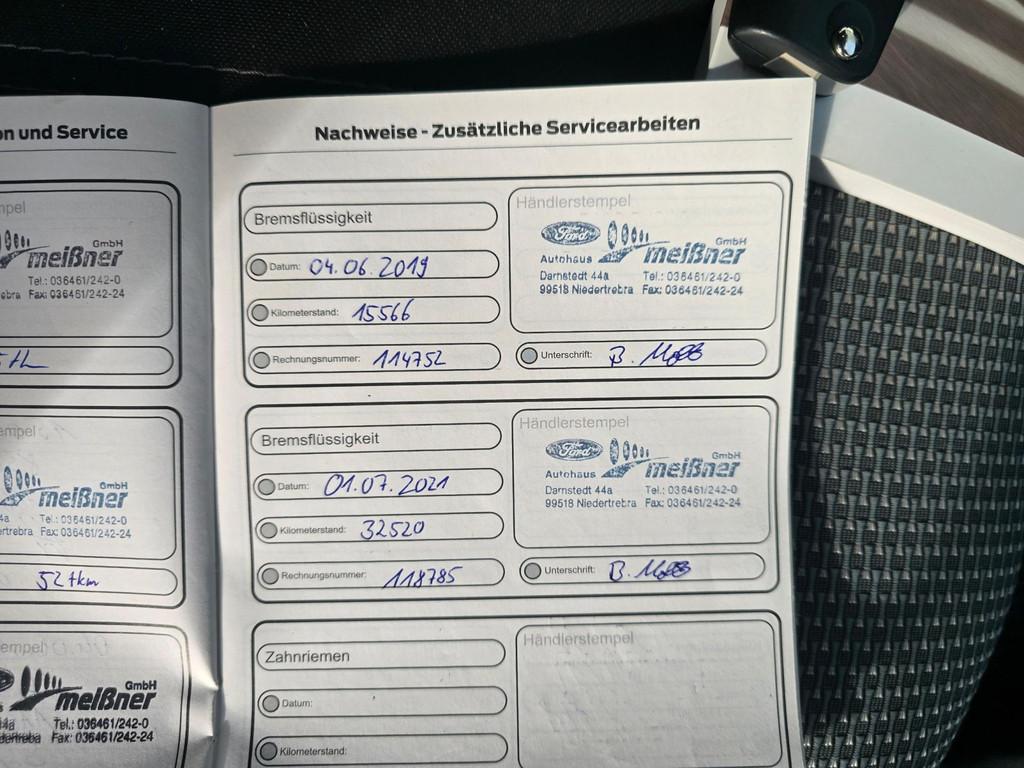 on und Service
mpel
GmbH
meißner
Tel.: 036461/242-0
ebra Fax: 036461/242-24
empel
GmbH
meißner
4a Tel.: 036461/242-0
ertrebra Fax: 036461/242-24
52 tkm
empel
GmbH
meißner
44a Tel.: 036461/242-0
Fax: 036461/242-24
Nachweise - Zusätzliche Servicearbeiten
Bremsflüssigkeit
Datum: 04.06.2019
Kilometerstand: 15566
Rechnungsnummer: 114752
Händlerstempel
Ford
GmbH
Autohaus meißner
Darnstedt 44a Tel.: 036461/242-0
99518 Niedertrebra Fax: 036461/242-24
Unterschrift: B.
Bremsflüssigkeit
Datum: 01.07.2021
Kilometerstand: 32520
Rechnungsnummer: 118785
Händlerstempel
Ford
GmbH
Autohaus meißner
Darnstedt 44a Tel.: 036461/242-0
99518 Niedertrebra Fax: 036461/242-24
Unterschrift: B.
Zahnriemen
Datum:
Kilometerstand:
Händlerstempel